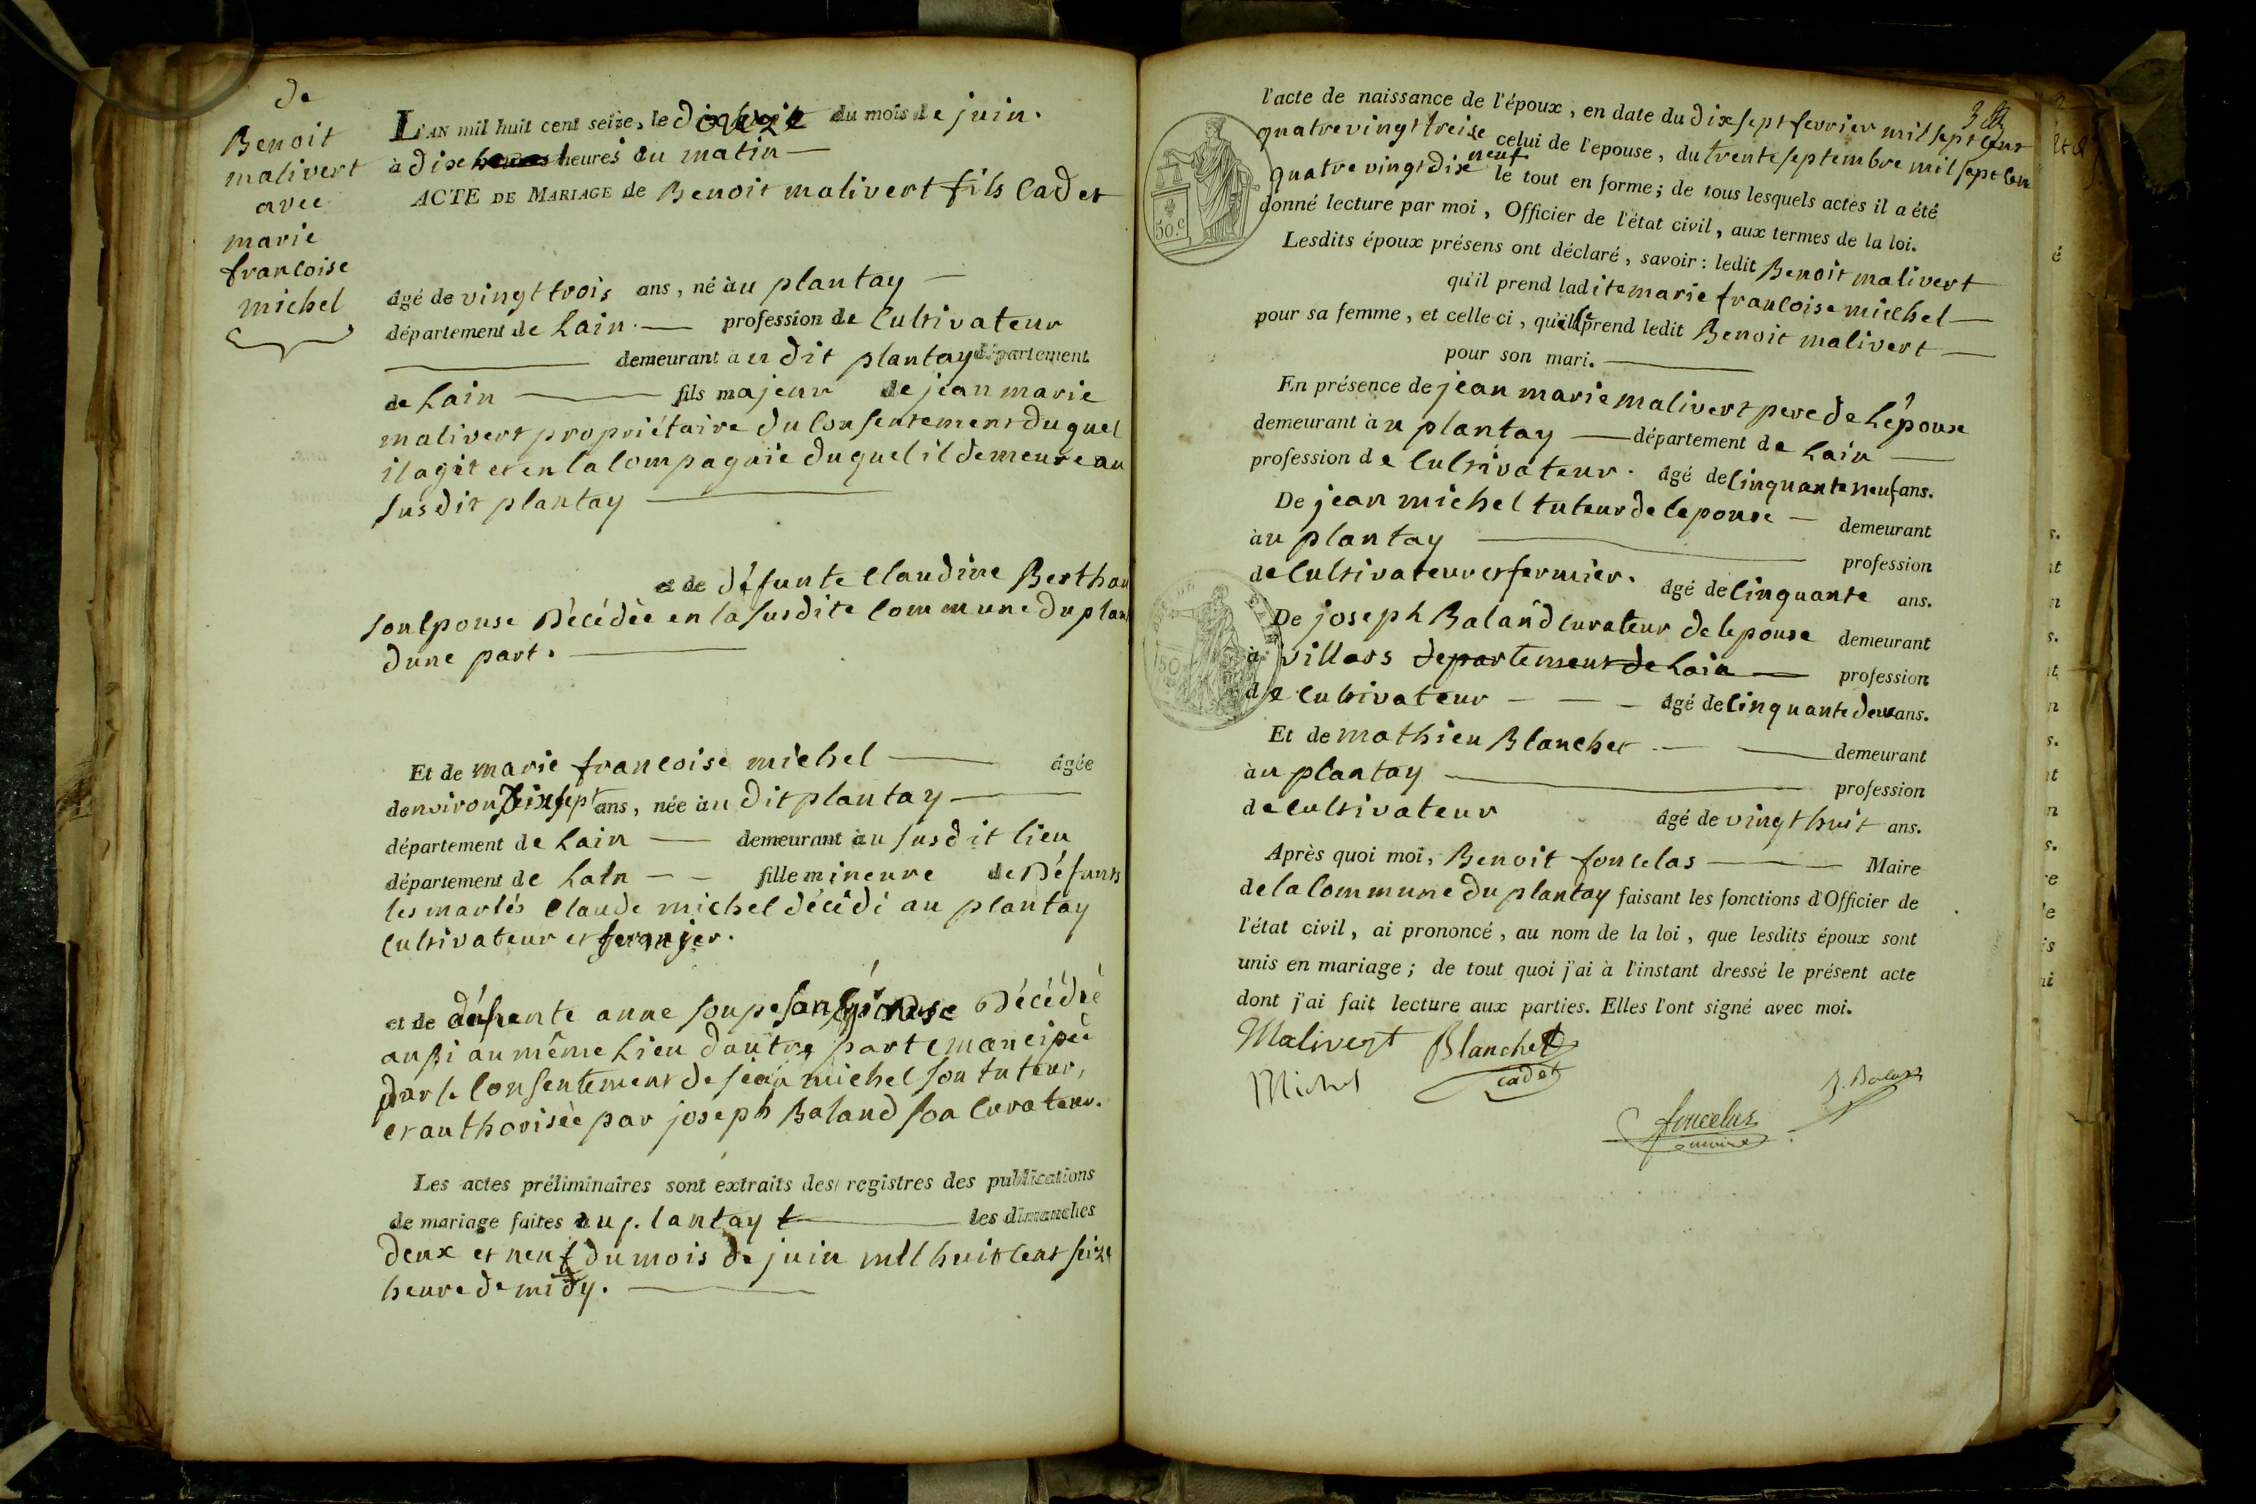 de
Benoit
malivert
avec
marie
francoise
michel
L'AN mil huit cent seize, le onze du mois de juin.
à dix heures du matin
ACTE DE MARIAGE de Benoit malivert fils Cadet
âgé de vingt trois ans, né àu plantay
département de Lain. profession de Cultivateur
demeurant à u dit plantay département
de Lain fils majeur de jean marie
malivert propriétaire du Consentement duquel
il agit et en la Compagnie duquel il demeure au
susdit plantay
et de défunte Claudine Berthau
son Epouse Décédée en la susdite Commune du plan
dune part.
Et de marie francoise michel âgée
denviron Dixsept ans, née àu dit plantay
département de Lain demeurant àu susdit lieu
département de Lain fille mineure de Défunts
les mariés Claude michel décédé au plantay
Cultivateur et fermier.
et de défunte anne soupe son épouse Décédée
aussi au même Lieu dautre part emancipée
par le Consentement de jean michel son tuteur,
et authorisée par joseph Baland son Curateur.
Les actes préliminaires sont extraits des registres des publications
de mariage faites au plantay les dimanches
deux et neuf du mois de juin mil huit cent seize
heure de midy.
l'acte de naissance de l'époux, en date du dix sept fevrier mil sept Cent
quatrevingt treise celui de l'epouse, du trente septembre mil sept Cen
neuf
quatre vingt dix le tout en forme; de tous lesquels actes il a été
donné lecture par moi, Officier de l'état civil, aux termes de la loi.
50.c
Lesdits époux présens ont déclaré, savoir: ledit Benoit malivert
qu'il prend ladite marie francoise michel
pour sa femme, et celle-ci, qu'elle prend ledit Benoit malivert
pour son mari.
En présence de jean marie malivert pere de Lépoux
demeurant àu plantay département de Lain
profession de Cultivateur. âgé de Cinquante neuf ans.
De jean michel tuteur de lepouse demeurant
àu plantay profession
de Cultivateur et fermier. âgé de Cinquante ans.
De joseph Baland Curateur de lepouse demeurant
à villars departement de Lain profession
50
de Cultivateur âgé de Cinquante deux ans.
Et de mathieu Blanchet demeurant
àu plantay profession
de Cultivateur âgé de vingt huit ans.
Après quoi moi, Benoit foncelas Maire
de la Commune du plantay faisant les fonctions d'Officier de
l'état civil, ai prononcé, au nom de la loi, que lesdits époux sont
unis en mariage; de tout quoi j'ai à l'instant dressé le présent acte
dont j'ai fait lecture aux parties. Elles l'ont signé avec moi.
Malivert Blanchet
cadet
Michel
J. Baland
foncelas
maire